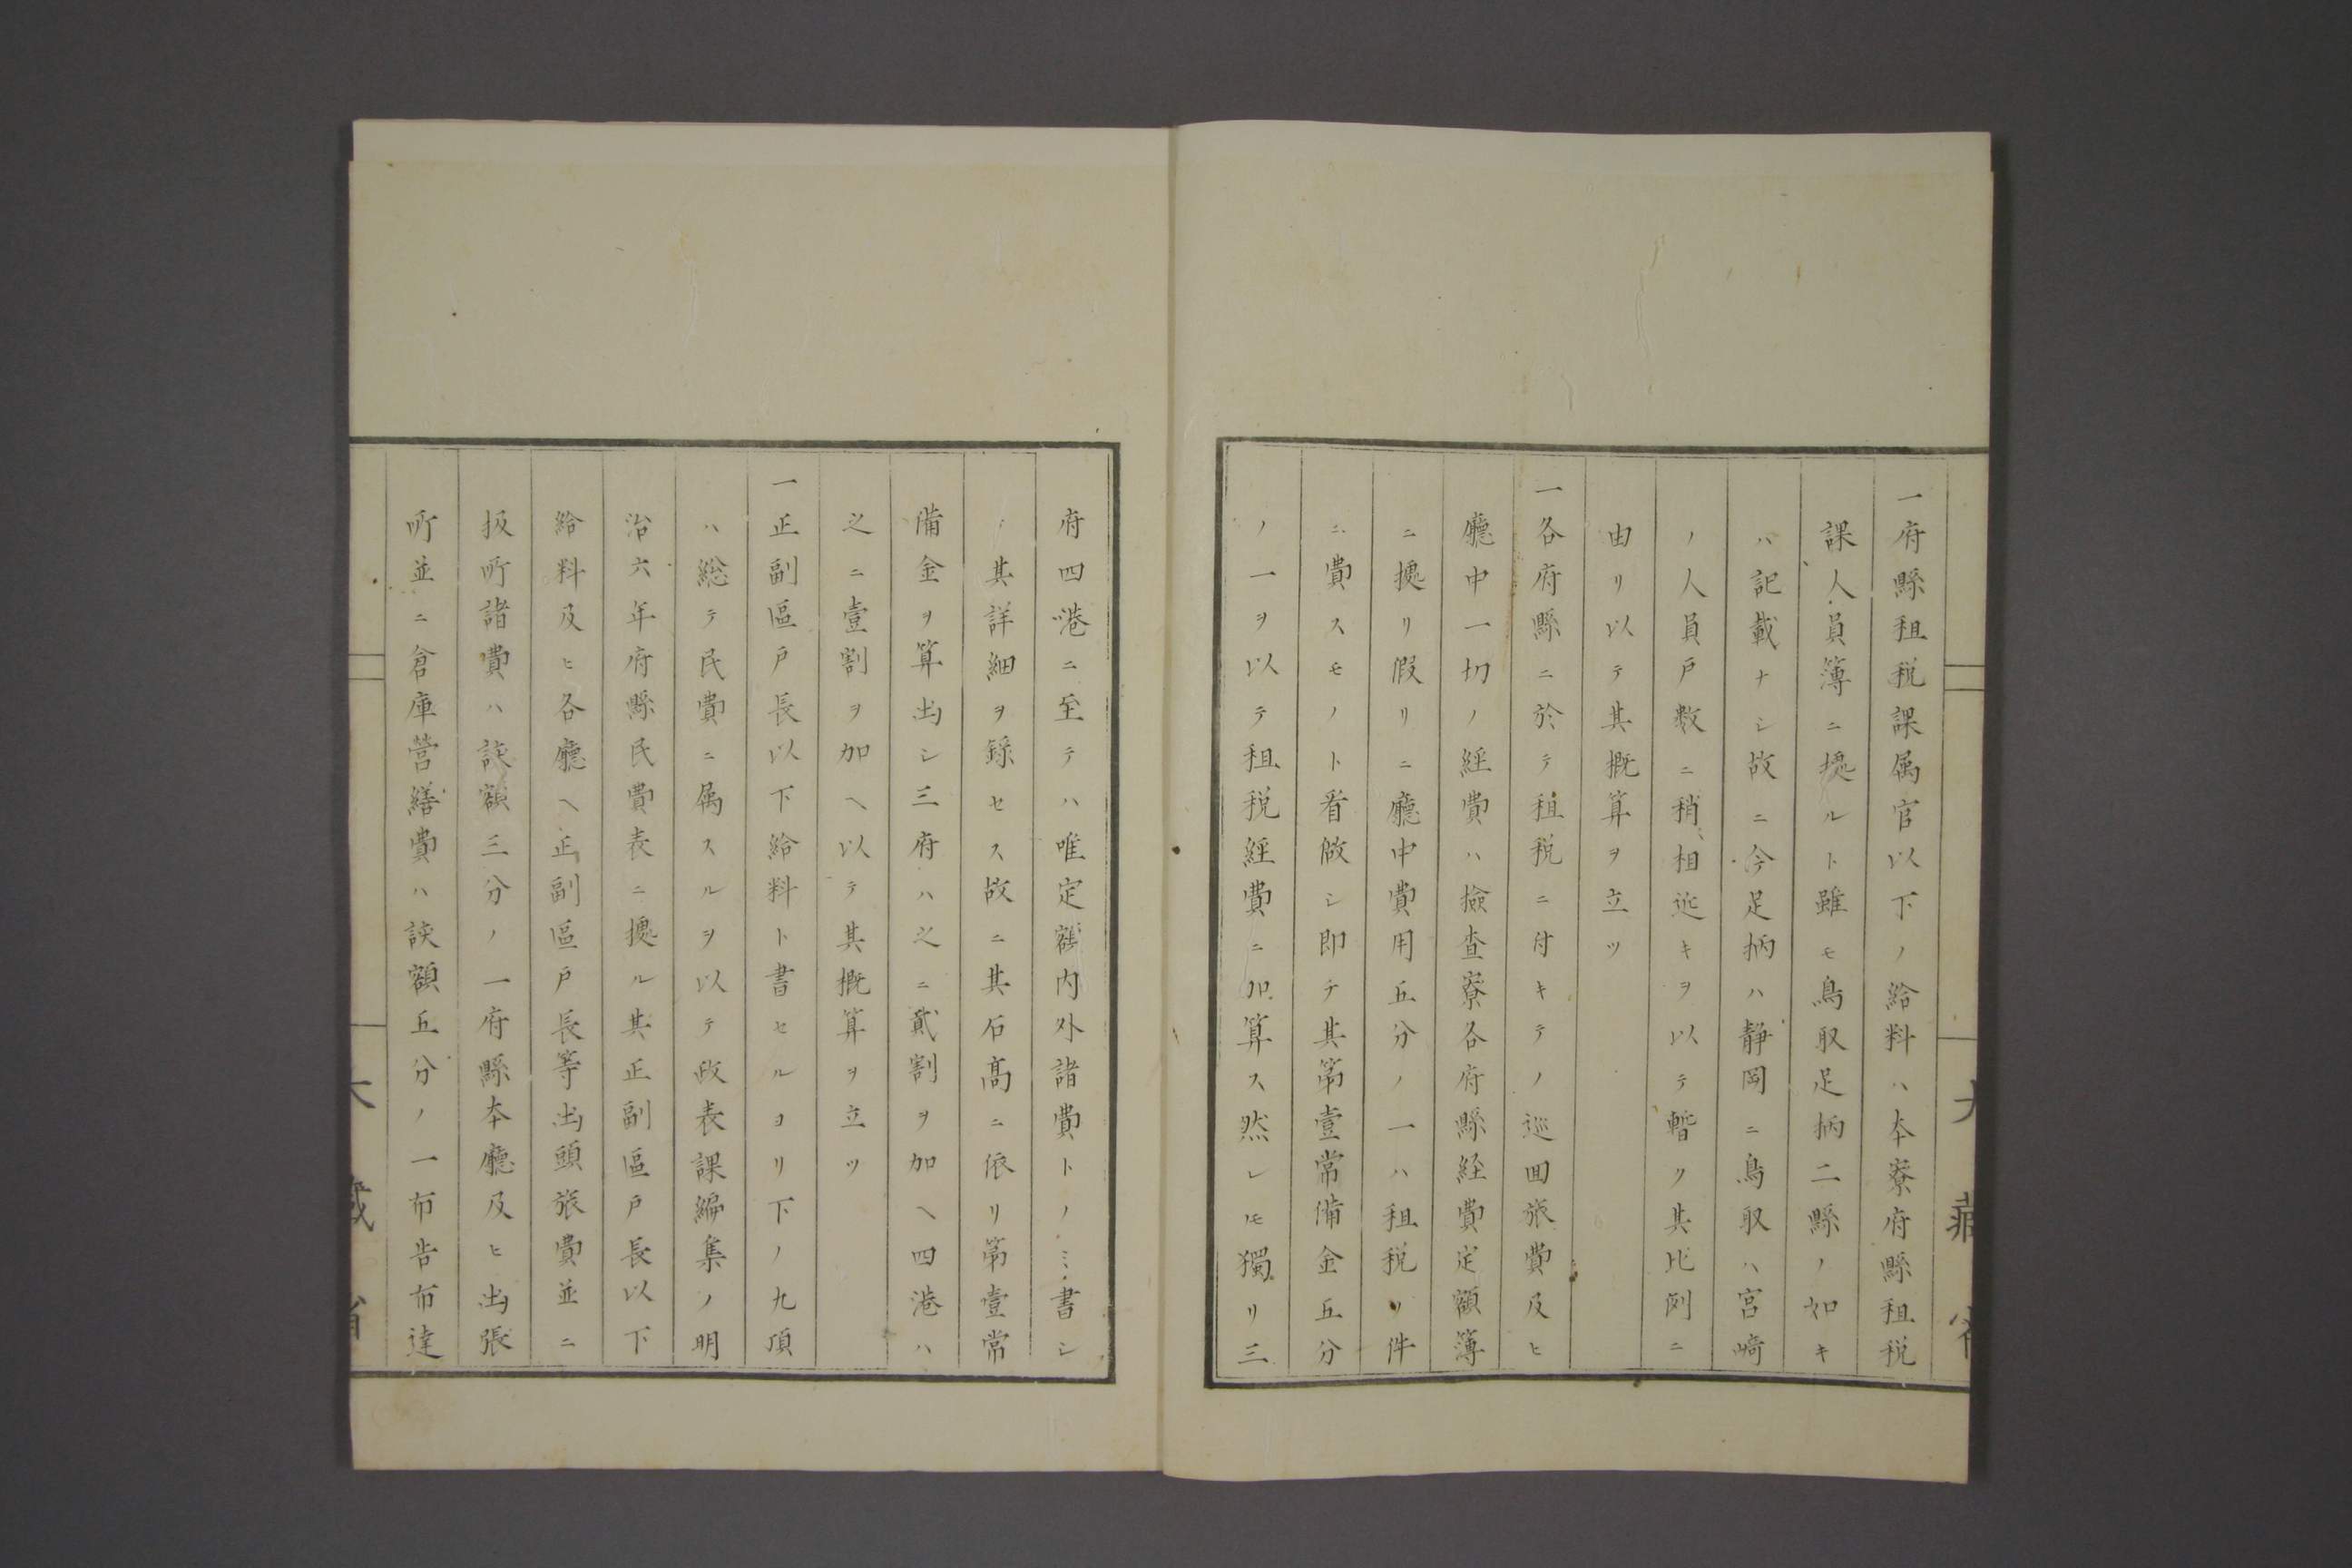 一府縣租税課属官以下ノ給料ハ本寮府縣租税
課人員簿ニ拠ルト雖モ鳥取足柄二縣ノ如キ
ハ記載ナシ故ニ今足柄ハ静岡ニ鳥取ハ宮﨑
ノ人員戸数ニ稍相近キヲ以テ暫ク其比例ニ
由リ以テ其概算ヲ立ツ
一各府縣ニ於テ租税ニ付キテノ巡回旅費及ヒ
廳中一切ノ経費ハ撿査寮各府縣経費定額簿
ニ拠リ假リニ廳中費用五分ノ一ハ租税ノ件
ニ費スモノト看做シ即チ其第壹常備金五分
ノ一ヲ以テ租税経費ニ加算ス然レ𪜈獨リ三
府四港ニ至テハ唯定額内外諸費トノミ書シ
其詳細ヲ録セス故ニ其石髙ニ依リ第壹常
備金ヲ算出シ三府ハ之ニ貳割ヲ加ヘ四港ハ
之ニ壹割ヲ加ヘ以テ其概算ヲ立ツ
一正副區戸長以下給料ト書セルヨリ下ノ九項
ハ総テ民費ニ属スルヲ以テ政表課編集ノ明
治六年府縣民費表ニ拠ル其正副區戸長以下
給料及ヒ各廳ヘ正副區戸長等出頭旅費並ニ
扱所諸費ハ該額三分ノ一府縣本廳及ヒ出張
所並ニ倉庫営繕費ハ該額五分ノ一布告布達
大藏省